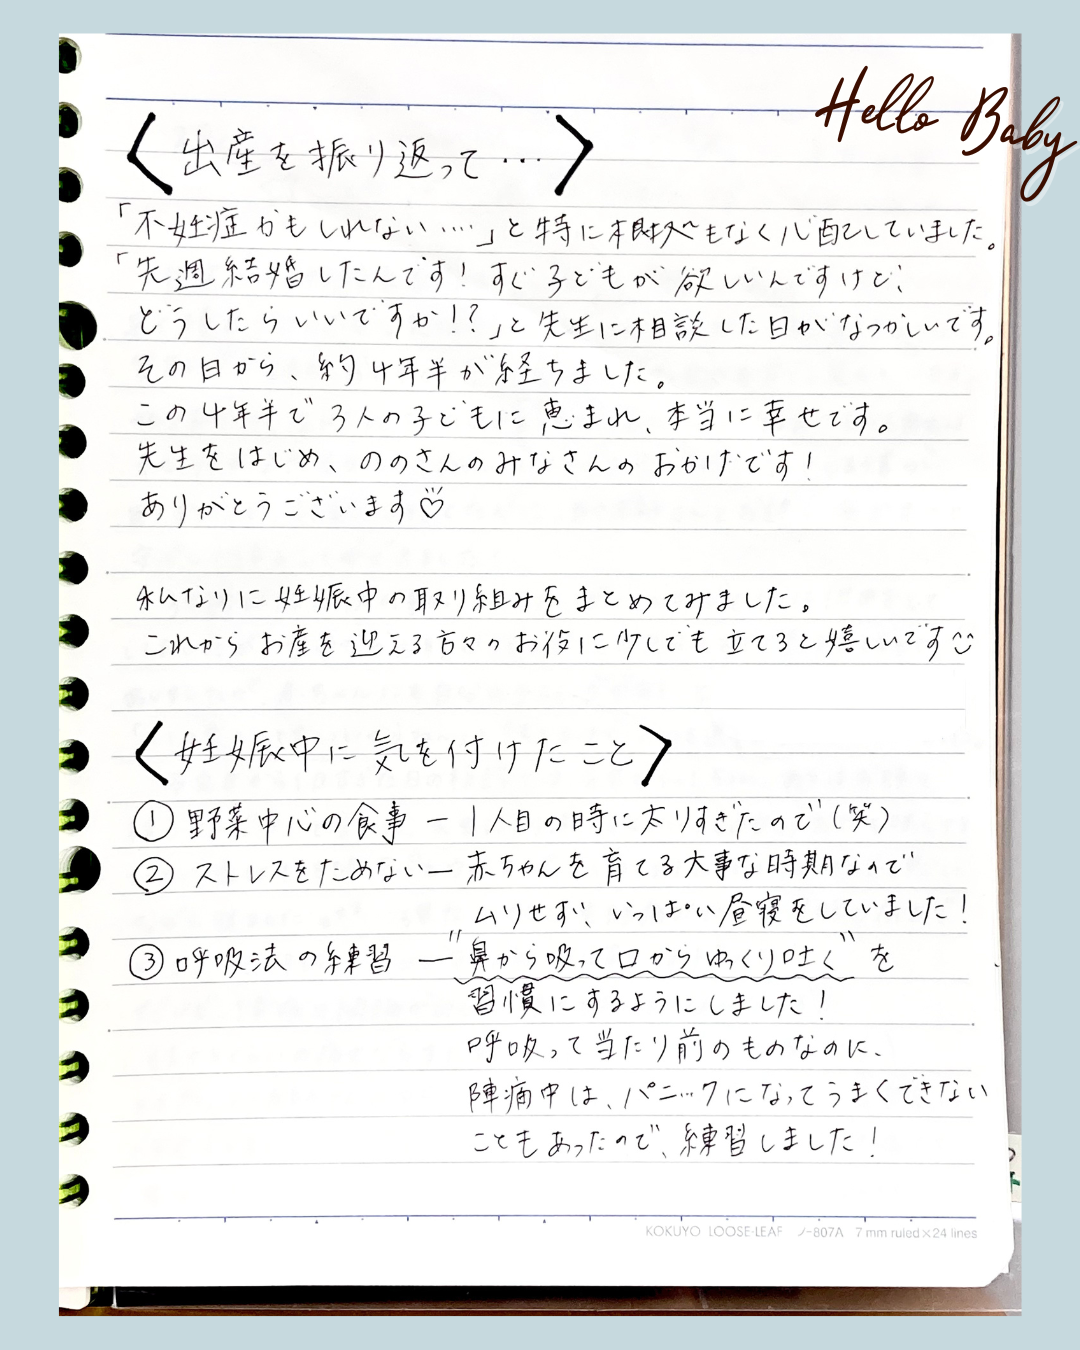 Hello Baby
〈出産を振り返って…〉
「不妊症かもしれない….」と特に根拠もなく心配していました。
「先週結婚したんです！すぐ子どもが欲しいんですけど、
どうしたらいいですか!?」と先生に相談した日がなつかしいです。
その日から、約4年半が経ちました。
この4年半で3人の子どもに恵まれ、本当に幸せです。
先生をはじめ、ののさんのみなさんのおかげです！
ありがとうございます♡
私なりに妊娠中の取り組みをまとめてみました。
これからお産を迎える方々のお役に少しでも立てると嬉しいです
〈妊娠中に気を付けたこと〉
① 野菜中心の食事 ー 1人目の時に太りすぎたので（笑）
② ストレスをためない ー 赤ちゃんを育てる大事な時期なので
ムリせず、いっぱい昼寝をしていました！
③ 呼吸法の練習 ー "鼻から吸って口からゆっくり吐く" を
習慣にするようにしました！
呼吸って当たり前のものなのに、
陣痛中は、パニックになってうまくできない
こともあったので、練習しました！
KOKUYO LOOSE-LEAF ノ-807A 7 mm ruled×24 lines